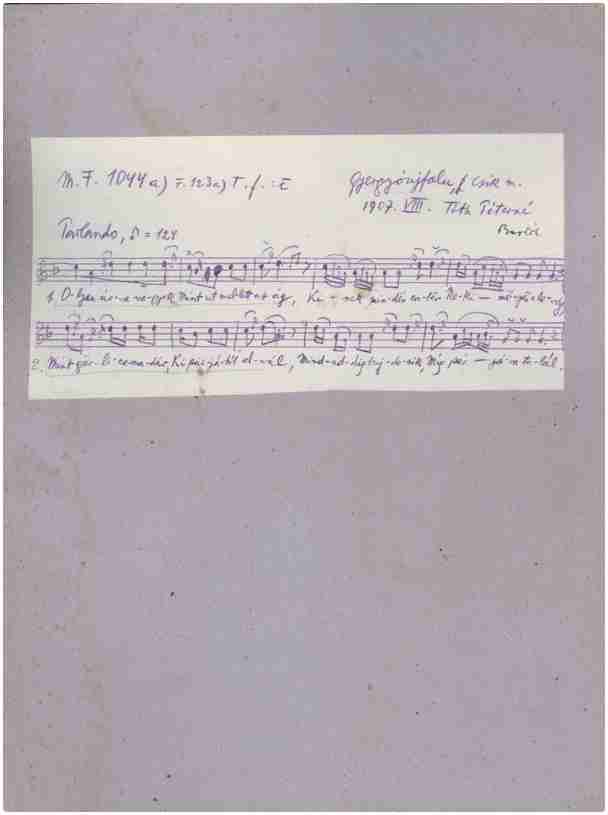 M.F. 1044 a) T. 123a) T.f. : E
Gyergyóújfalu, Csík m.
1907. VIII. Tóth Péterné
Bartók
Parlando, ♪ = 124
1. Olyan ár-va va-gyok, Mint út mellett az ág, Ki-nek min-den em-ber
2. Mint ger-li-ce ma-dár, Ki pár-já-tól el-vál, Mind-ad-dig buj-do-sik, Míg pár-já-ra ta-lál.